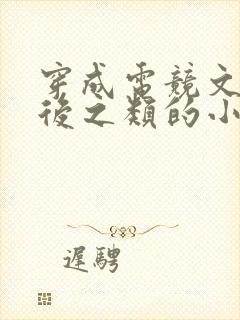 穿成電競文
後之類的小
遲騁